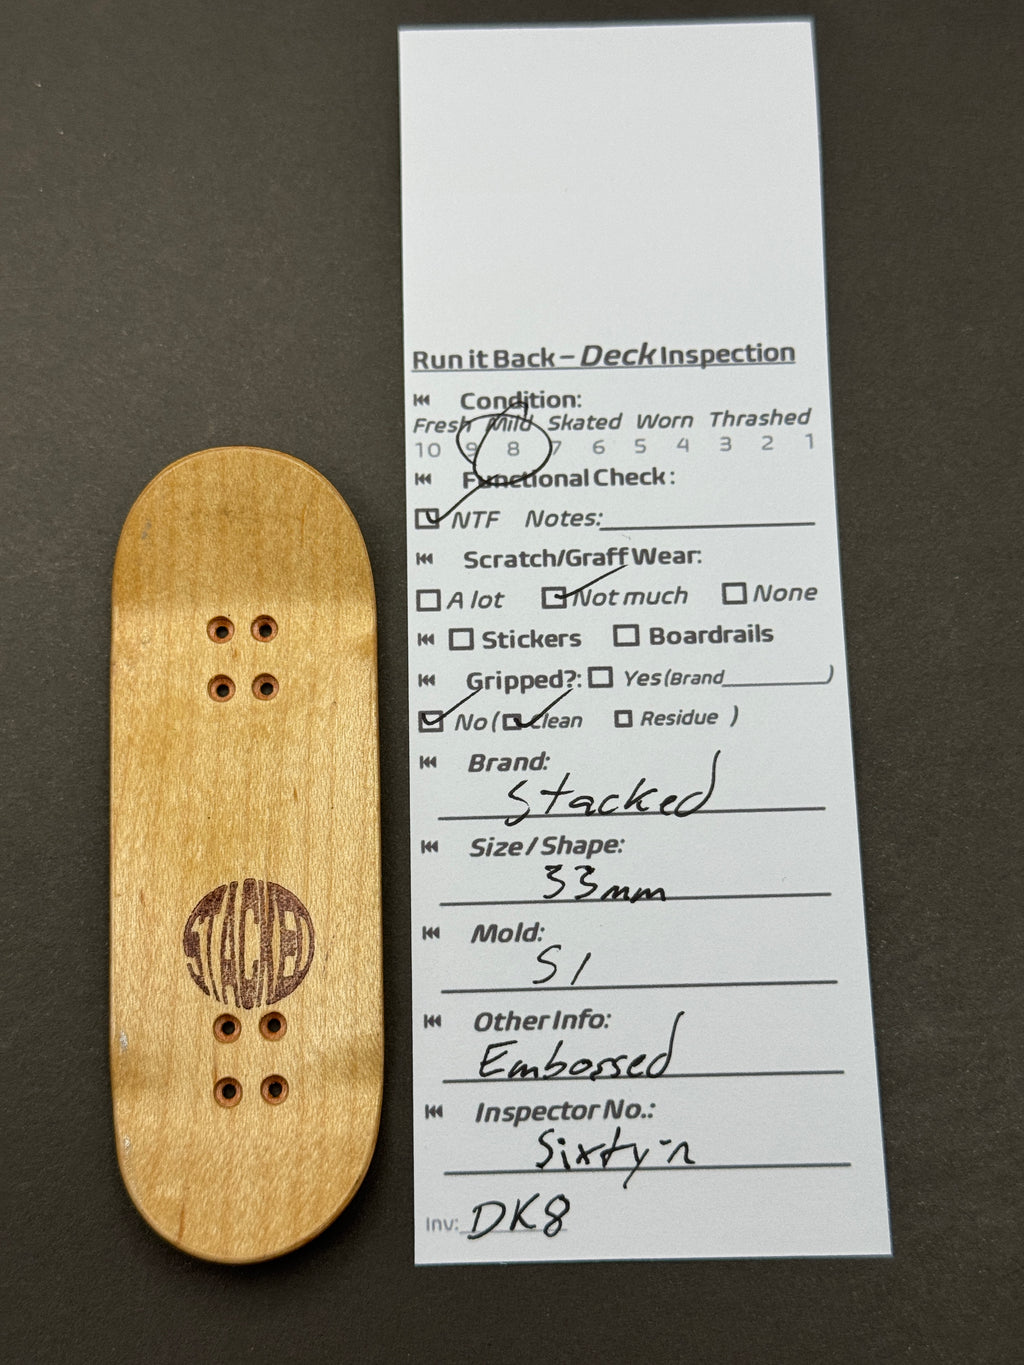 Run it Back – Deck Inspection
Condition:
Fresh Mild Skated Worn Thrashed
10 9 8 7 6 5 4 3 2 1
Functional Check:
NTF Notes:
Scratch/Graff Wear:
A lot Not much None
Stickers Boardrails
Gripped?: Yes (Brand )
No ( Clean Residue )
Brand:
Stacked
Size / Shape:
33mm
Mold:
S1
Other Info:
Embossed
Inspector No.:
Sixty-n
Inv: DK8
STACKED